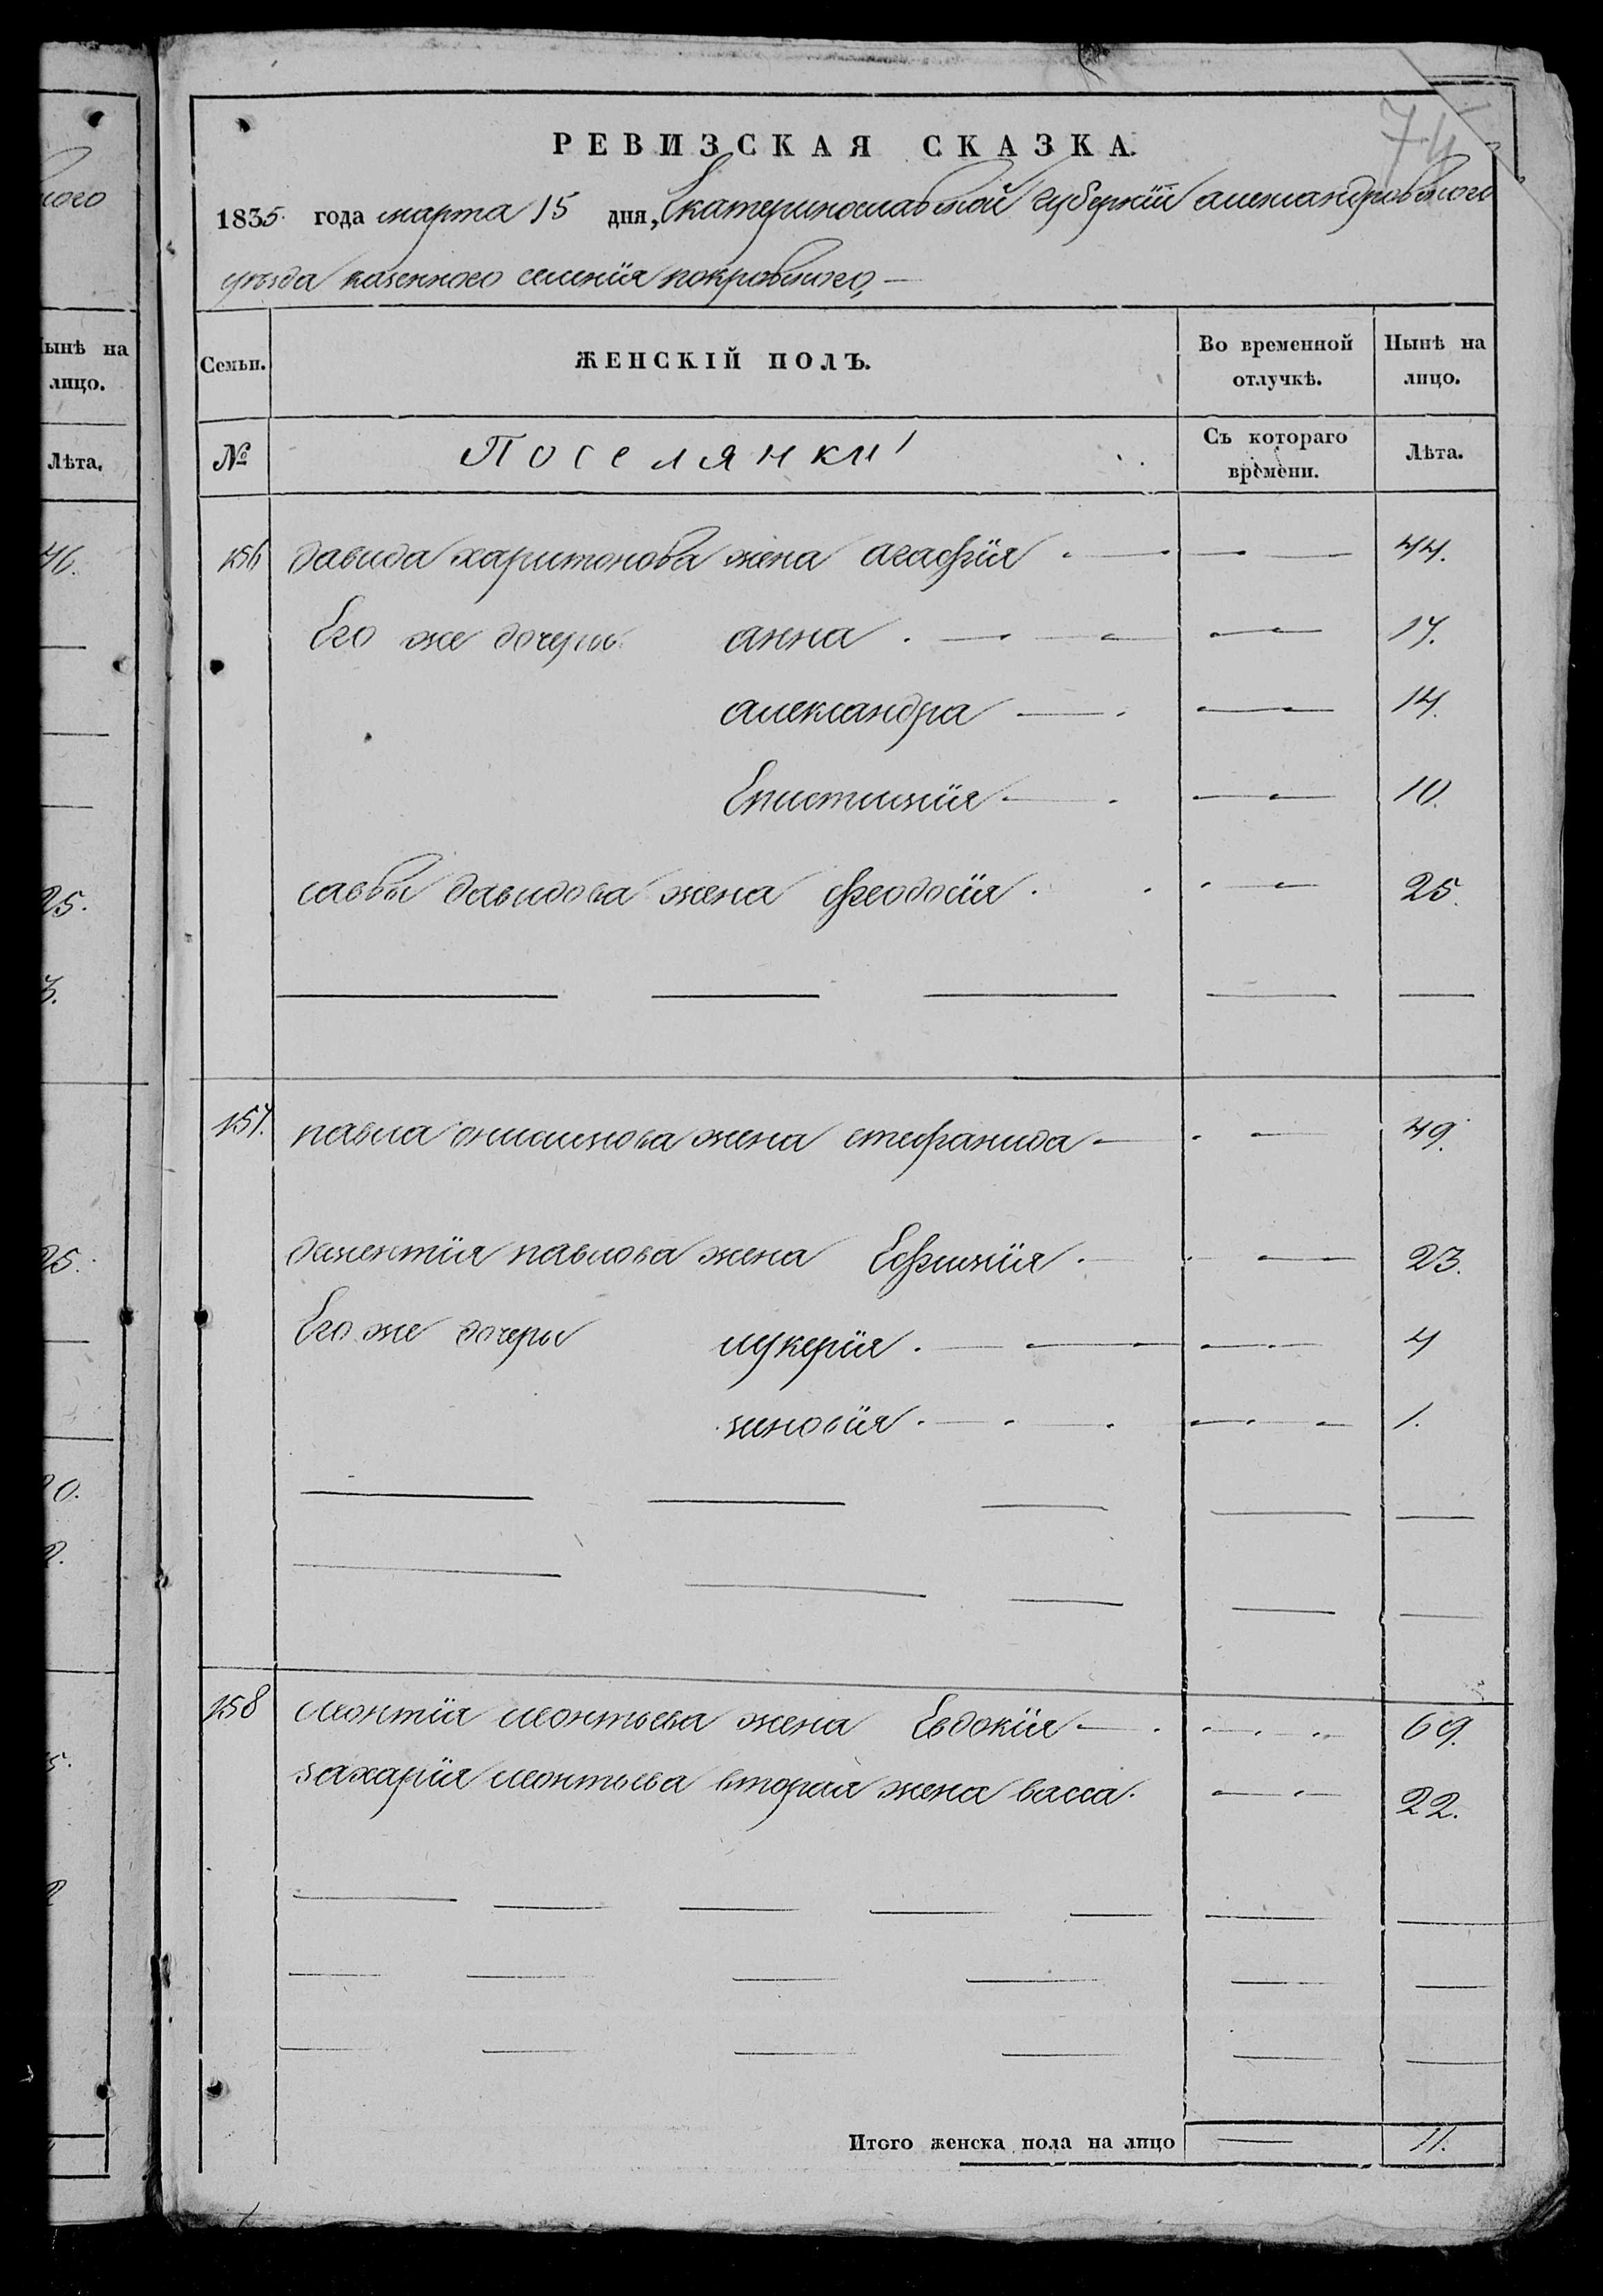 74
РЕВИЗСКАЯ СКАЗКА.
1835. года марта 15 дня, Екатеринославской губернїи александровского
уѣзда казенного селенїя покровского,
Семьи. ЖЕНСКІЙ ПОЛЪ. Во временной отлучкѣ. Нынѣ на лицо.
№ Поселянки Съ котораго времени. Лѣта.
156 давида харитонова жена агафїя 44.
Его же дочери анна 17.
александра 14.
Епистимїя 10.
саввы давидова жена феодосїя 25.
157. павла онисимова жена стефанида 49.
павлова жена Ефимїя 23.
Его же дочери лукерїя 4
зиновїя 1.
158 леонтїя леонтьева жена Евдокїя 69.
захарїя леонтьева вторая жена васса. 22.
Итого женска пола на лицо 11.
ного
Нынѣ на
лицо.
Лѣта.
46.
25.
25.